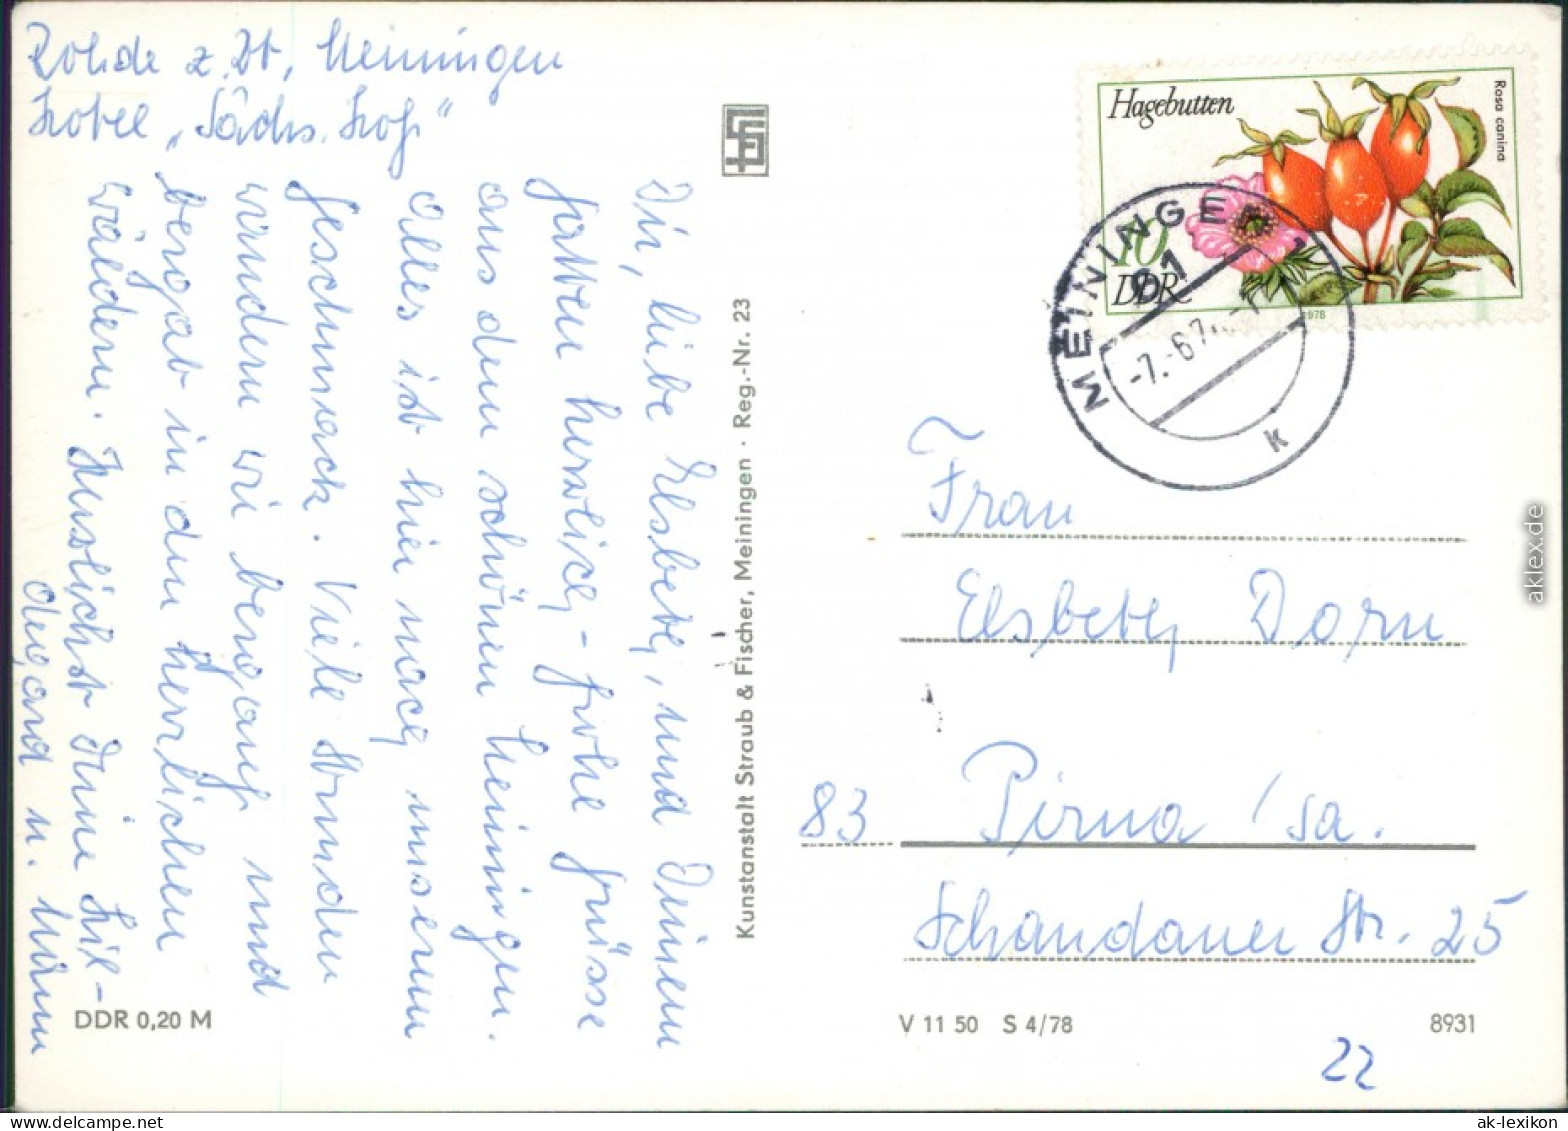 Rohde z. Zt. Meiningen
Hotel „Sächs. Hof"
Dir, liebe Elsbeth, und Deinem
Gatten herzlich-frohe Grüsse
aus dem schönen Meiningen.
Alles ist hier nach unserem
Geschmack. Viele Stunden
wandern wir bergauf und
bergab in den herrlichen
Wäldern. Herzlichst Deine Hil-
degard u. Mann
Kunstanstalt Straub & Fischer, Meiningen · Reg.-Nr. 23
DDR 0,20 M
Hagebutten
Rosa canina
10
DDR
1978
MEININGE
61
-7.-6.7
k
Frau
Elsbeth Dorn
83 Pirna / Sa.
Schandauer Str. 25
V 11 50 S 4/78
8931
22
aklex.de
ak-lexikon